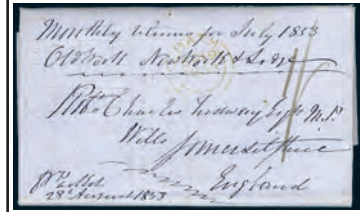 Monthly returns for July 1853
Old Work New Work & Lodge
Charles Tudway Esqr M.P.
Wells
Somersetshire
England
28th August 1853